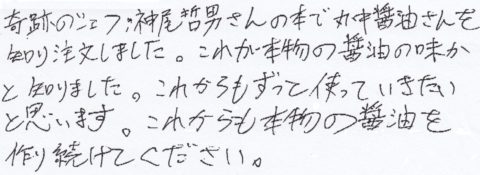 奇跡のシェフ・神尾哲男さんの本で丸中醤油さんを
知り注文しました。これが本物の醤油の味か
と知りました。これからもずっと使っていきたい
と思います。これからも本物の醤油を
作り続けてください。